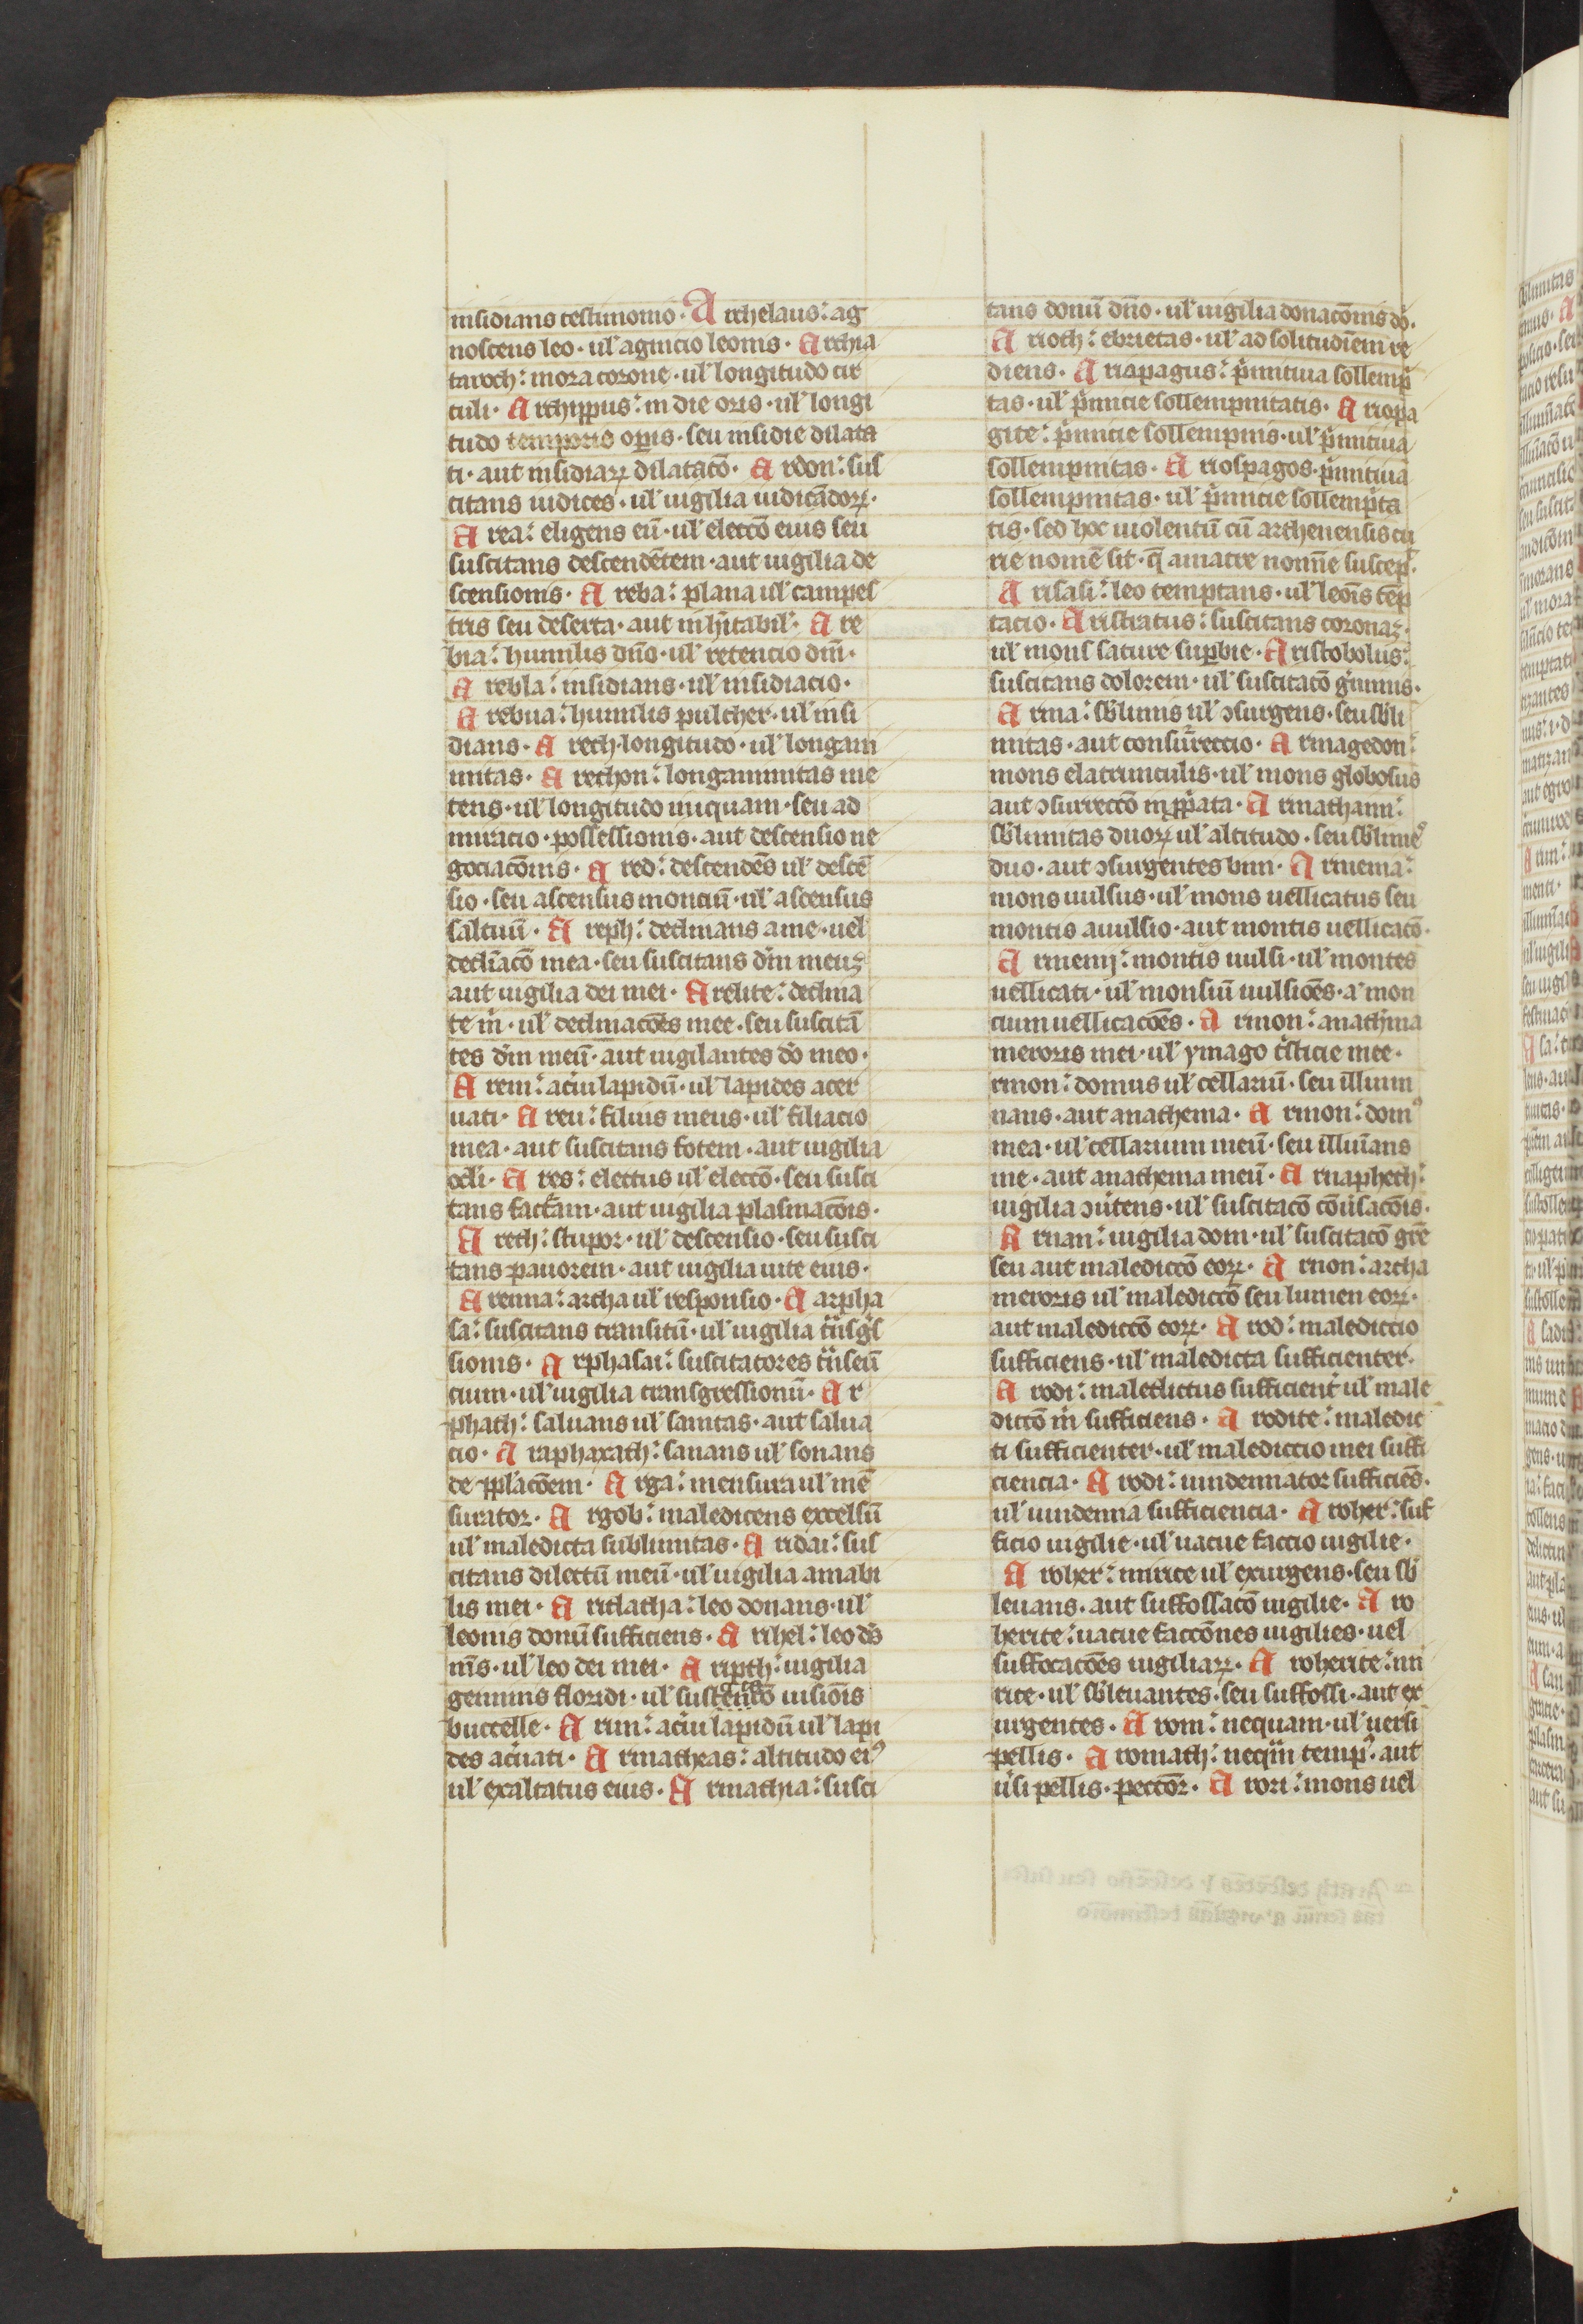 insidians testimonio · Archelaus : ag
noscens leo · ul' agnicio leonis · Archia
taroch : mora corone · ul' longitudo cir
culi · Archippus : in die oris · ul' longi
tudo temporis oꝑis · seu insidie dilata
ti · aut insidiaꝝ dilatacō · Ardon : sus
citans iudices · ul' uigilia iudicādoꝝ ·
Area : eligens eū · ul' eleccō eius seu
suscitans descendētem · aut uigilia de
scensionis · Areba : plana ul' campes
tris seu deserta · aut inhītabil' · Are
bia : humilis dn̄o · ul' retencio dn̄i ·
Arebla : insidians · ul' insidiacio ·
Arebna : humilis pulcher · ul' insi
dians · Arech · longitudo · ul' longani
mitas · Arechon : longanimitas me
tens · ul' longitudo iniquam · seu ad
miracio · possessionis · aut descensio ne
gociacōnis · Ared : descendēs ul' descē
sio · seu ascensus monciū · ul' ascensus
saltuū · Areph : declinans a me · uel
decliācō mea · seu suscitans dm̄ meuꝫ
aut uigilia dei mei · Arelite : declina
te m̄ · ul' declinacōēs mee · seu suscitā
tes dm̄ meū · aut uigilantes dō meo ·
Arem : ac̄iu lapidū · ul' lapides acer
uati · Areu : filius meus · ul' filiacio
mea · aut suscitans fotem · aut uigilia
ocli · Ares : electus ul' eleccō · seu susci
tans factam · aut uigilia plasmacōis ·
Areth : stupor · ul' descensio · seu susci
tans pauorem · aut uigilia uite eius ·
Arenna : archa ul' responsio · Aarpha
sa : suscitans transitū · ul' uigilia tͣnsgͥs
sionis · Arphasai : suscitatores tͣnseū
cium · ul' uigilia transgressionū · Ar
phath : saluans ul' sanitas · aut salua
cio · Araphaxath : sanans ul' sonans
de ꝓplacōem · Arga : mensura ul' mē
surator · Argob : maledicens excelsū
ul' maledicta sublimitas · Aridai : sus
citans dilectū meū · ul' uigilia amabi
lis mei · Aridatha : leo donans · ul'
leonis donū sufficiens · Arihel : leo dō
m̄s · ul' leo dei mei · Aripth : uigilia
geminis floridi · ul' uisiōis
buccelle · Arim : ac̄iu lapidū ul' lapi
des ac̄uati · Armatheas : altitudo ei⁹
ul' exaltatus eius · Armathia : susci
tans donū dn̄o · ul' uigilia donacōnis dō ·
Arioth : ebrietas · ul' ad solitudinem re
diens · Ariapagus : pͥmitiua sollemp
tas · ul' pͥmicie sollempnitatis · Ariopa
gite : pͥmicie sollempnis · ul' pͥmitiua
sollempnitas · Ariospagos · pͥmitiua
sollempnitas · ul' pͥmicie sollempta
tis · sed hoc uiolentū cū atheniensis cu
rie nomē sit · q̄ amarte nomīe suscep̄ ·
Arisasi : leo temptans · ul' leoīs tēp
tacio · Aristratus : suscitans coronaꝫ ·
ul' mons sature suꝑbie · Aristobolus :
suscitans dolorem · ul' suscitacō gͥminis ·
Arma : sb̄limis ul' ↄsurgens · seu sb̄li
mitas · aut consurreccio · Armagedon :
mons e latrunculis · ul' mons globosus
aut ↄsurreccō in pͥata · Armathaim :
sb̄limitas duoꝝ ul' altitudo · seu sb̄lime⁹
duo · aut ↄsurgentes bini · Armema :
mons uulsus · ul' mons uellicatus seu
montis auulsio · aut montis uellicacō ·
Armenij : montis uulsi · ul' montes
uellicati · ul' monsiū uulsiōes · a' mon
cium uellicacōes · Armon : anathīma
meroris mei · ul' ymago tͥsticie mee ·
rmon : domus ul' cellariū · seu illumi
nans · aut anathema · Armon : dom⁹
mea · ul' cellarium meū · seu illuīans
me · aut anathema meū · Arnaphech :
uigilia ↄūtens · ul' suscitacō cōūsacōis ·
Arnan : uigilia dom · ul' suscitacō gr̄e
seu aut malediccō eoꝝ · Arnon : archa
meroris ul' malediccō seu lumen eoꝝ ·
aut malediccō eoꝝ · Arod : malediccio
sufficiens · ul' maledicta sufficienter ·
Arodi : maledictus sufficient̄ ul' male
diccō m̄ sufficiens · Arodite : maledic
ti sufficienter · ul' malediccio mei suffi
ciencia · Arodi : uindemiator sufficiēs ·
ul' uindemia sufficiencia · Aroher : suf
ficio uigilie · ul' uacue faccio uigilie ·
Aroher : mirice ul' exurgens · seu sb̄
leuans · aut suffossacō uigilie · Aro
herite : uacue faccōnes uigilies · uel
suffocacōēs uigiliaꝝ · Aroherite : mi
rice · ul' sb̄leuantes · seu suffossi · aut ex
urgentes · Arom : nequam · ul' uersi
pellis · Aromath : neqͣm temp⁹ · aut
ūsi pellis · peccōr · Arori : mons uel